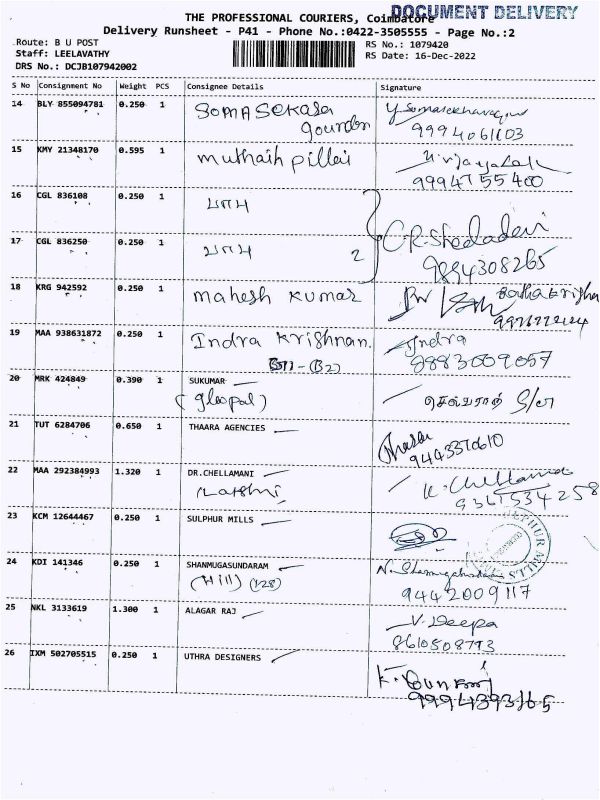 DOCUMENT DELIVERY
THE PROFESSIONAL COURIERS, Coimbatore
Delivery Runsheet - P41 - Phone No.:0422-3505555 - Page No.:2
Route: B U POST
Staff: LEELAVATHY
DRS No.: DCJB107942002
RS No.: 1079420
RS Date: 16-Dec-2022
S No Consignment No Weight PCS Consignee Details Signature
14 BLY 855094781 0.250 1 SOMASEKARA
gounder
9994061103
15 KMY 21348170 0.595 1 muthaih pillai
9994755400
16 CGL 836108 0.250 1
17 CGL 836250 0.250 1 2
9894308265
18 KRG 942592 0.250 1 mahesh kumar
19 MAA 938631872 0.250 1 Indra Krishnan. Indra
9883009057
20 MRK 424849 0.390 1 SUKUMAR
செல்வராஜ் S/o
21 TUT 6284706 0.650 1 THAARA AGENCIES
9443370610
22 MAA 292384993 1.320 1 DR.CHELLAMANI K. Chellama
(Lakshmi 9361534258
23 KCM 12644467 0.250 1 SULPHUR MILLS
SULPHUR MILLS
24 KDI 141346 0.250 1 SHANMUGASUNDARAM
(Hill) (128) 9442009117
25 NKL 3133619 1.300 1 ALAGAR RAJ V. Deepa
8610508793
26 IXM 502705515 0.250 1 UTHRA DESIGNERS
9994393165